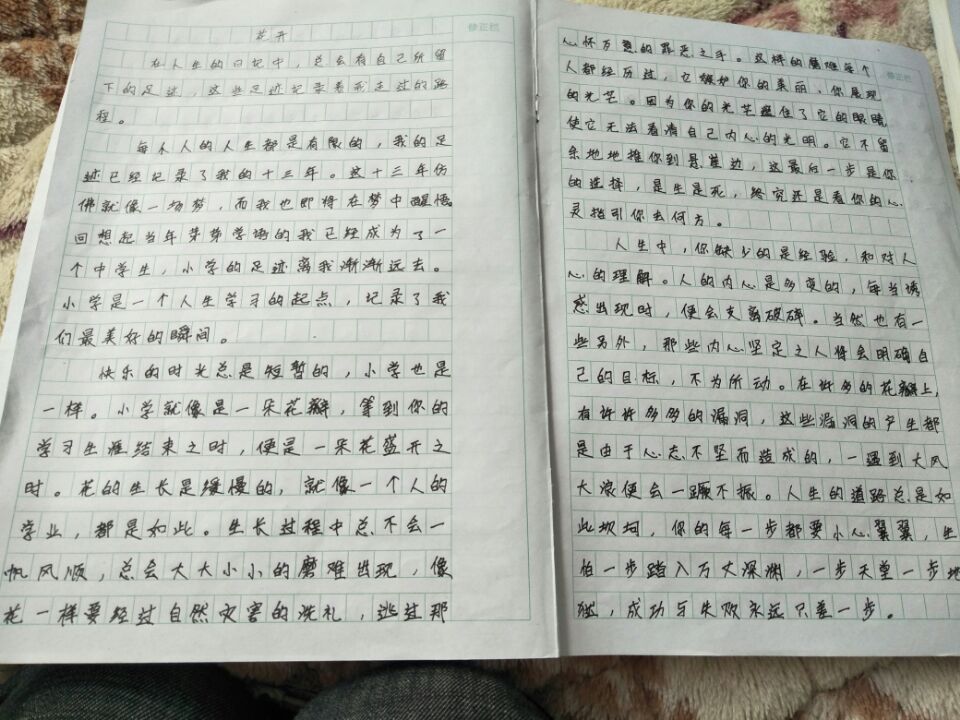 花开
修正栏
在人生的日记中，总会有自己所留
下的足迹，这些足迹记录着我走过的路
程。
每个人的人生都是有限的，我的足
迹已经记录了我的十三年。这十三年仿
佛就像一场梦，而我也即将在梦中醒悟
回想起当年芽芽学语的我已经成为了一
个中学生，小学的足迹离我渐渐远去。
小学是一个人生学习的起点，记录了我
们最美好的瞬间。
快乐的时光总是短暂的，小学也是
一样。小学就像是一朵花瓣，等到你的
学习生涯结束之时，便是一朵花盛开之
时。花的生长是缓慢的，就像一个人的
学业，都是如此。生长过程中总不会一
帆风顺，总会大大小小的磨难出现，像
花一样要经过自然灾害的洗礼，逃过那
修正栏
心怀万恶的罪恶之手。这样的磨难每个
人都经历过，它嫉妒你的美丽，你展现
的光芒。因为你的光芒遮住了它的眼睛
使它无法看清自己内心的光明。它不留
余地地推你到悬崖边，这最后一步是你
的选择，是生是死，终究还是看你的心
灵指引你去何方。
人生中，你缺少的是经验，和对人
心的理解。人的内心是多变的，每当诱
惑出现时，便会支离破碎。当然也有一
些另外，那些内心坚定之人将会明确自
己的目标，不为所动。在许多的花瓣上，
有许许多多的漏洞，这些漏洞的产生都
是由于心态不坚而造成的，一遇到大风
大浪便会一蹶不振。人生的道路总是如
此坎坷，你的每一步都要小心翼翼，生
怕一步踏入万丈深渊，一步天堂一步地
狱，成功与失败永远只差一步。